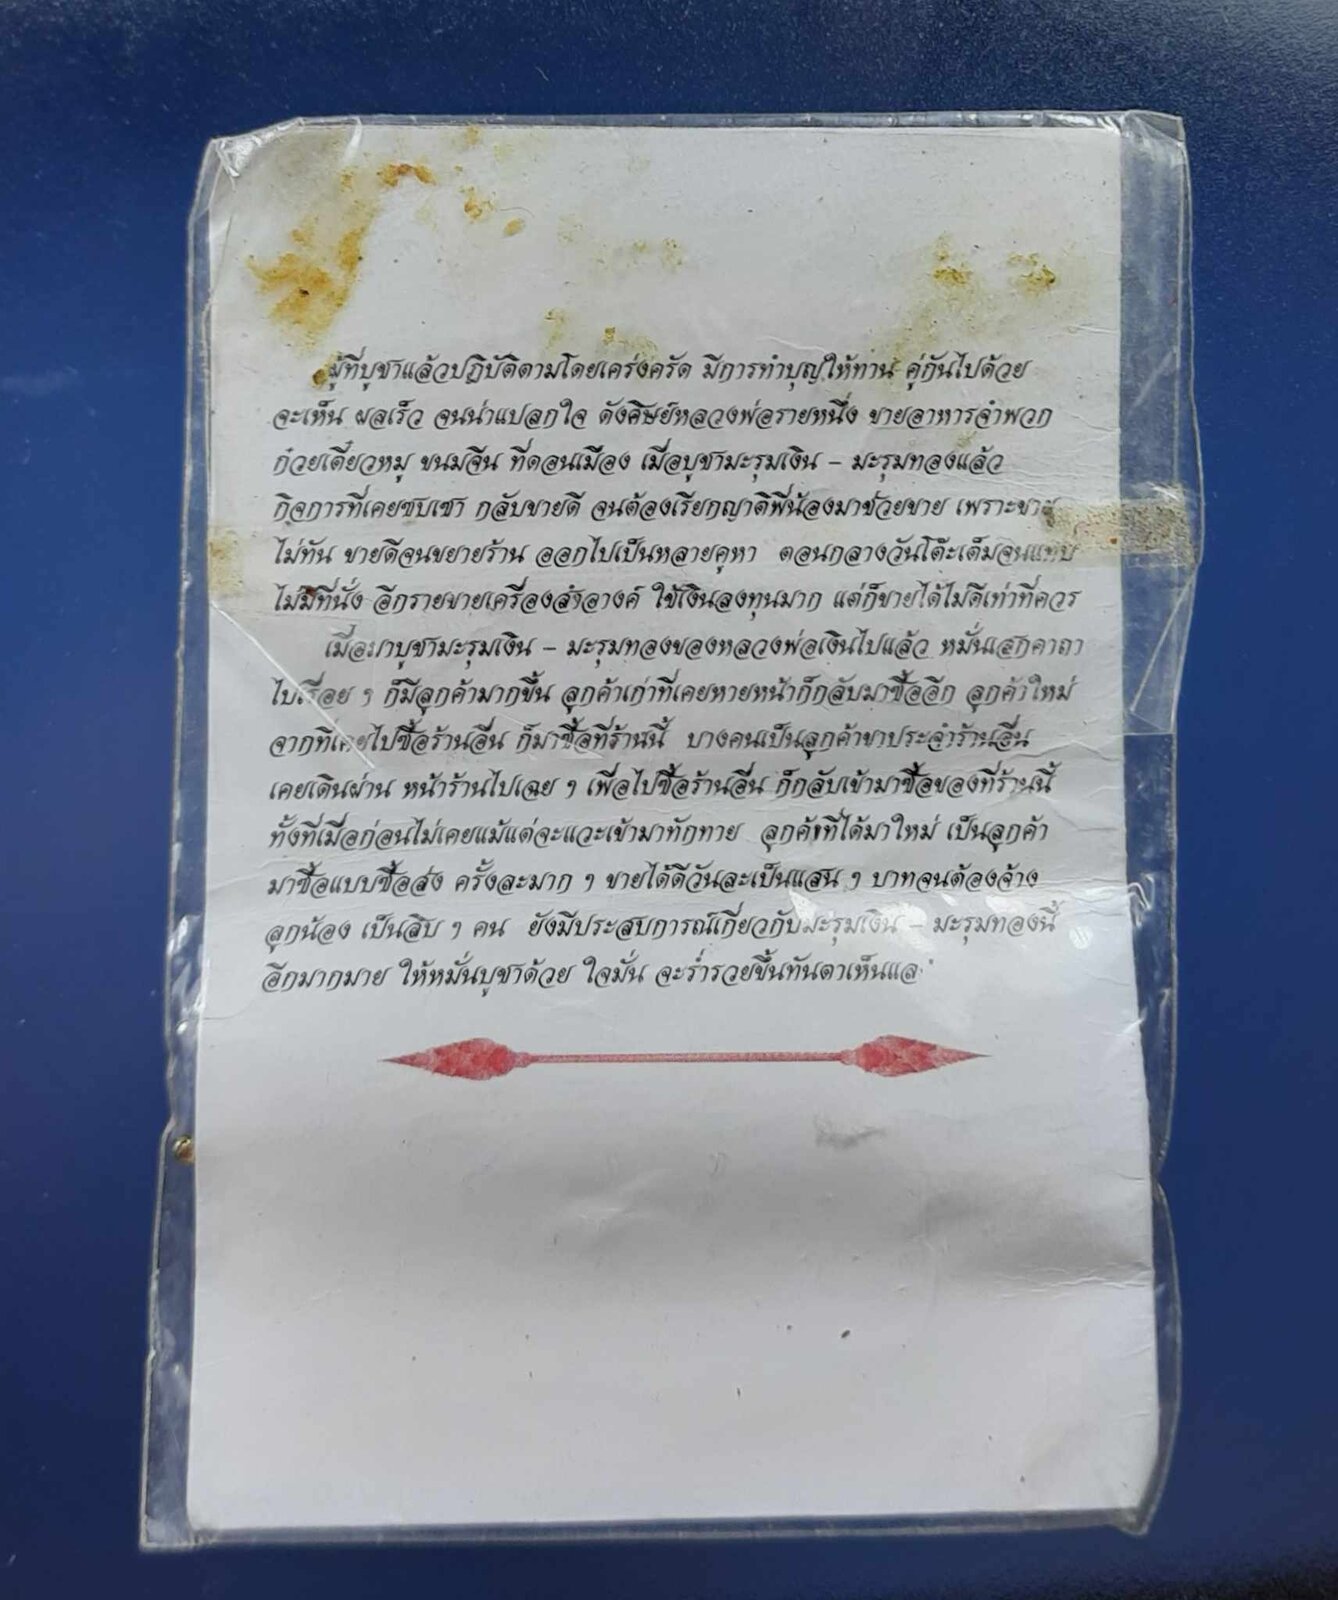 ผู้ที่บูชาแล้วปฏิบัติตามโดยเคร่งครัด มีการทำบุญให้ทาน คู่กันไปด้วย
จะเห็น ผลเร็ว จนน่าแปลกใจ ดังศิษย์หลวงพ่อรายหนึ่ง ขายอาหารจำพวก
ก๋วยเตี๋ยวหมู ขนมจีน ที่ดอนเมือง เมื่อบูชามะรุมเงิน – มะรุมทองแล้ว
กิจการที่เคยซบเซา กลับขายดี จนต้องเรียกญาติพี่น้องมาช่วยขาย เพราะขาย
ไม่ทัน ขายดีจนขยายร้าน ออกไปเป็นหลายคูหา ตอนกลางวันโต๊ะเต็มจนแทบ
ไม่มีที่นั่ง อีกรายขายเครื่องสำอางค์ ใช้เงินลงทุนมาก แต่ก็ขายได้ไม่ดีเท่าที่ควร
เมื่อมาบูชามะรุมเงิน – มะรุมทองของหลวงพ่อเงินไปแล้ว หมั่นเสกคาถา
ไปเรื่อย ๆ ก็มีลูกค้ามากขึ้น ลูกค้าเก่าที่เคยหายหน้าก็กลับมาซื้ออีก ลูกค้าใหม่
จากที่เคยไปซื้อร้านอื่น ก็มาซื้อที่ร้านนี้ บางคนเป็นลูกค้าขาประจำร้านอื่น
เคยเดินผ่าน หน้าร้านไปเฉย ๆ เพื่อไปซื้อร้านอื่น ก็กลับเข้ามาซื้อของที่ร้านนี้
ทั้งที่เมื่อก่อนไม่เคยแม้แต่จะแวะเข้ามาทักทาย ลูกค้าที่ได้มาใหม่ เป็นลูกค้า
มาซื้อแบบซื้อส่ง ครั้งละมาก ๆ ขายได้ดีวันละเป็นแสน ๆ บาทจนต้องจ้าง
ลูกน้อง เป็นสิบ ๆ คน ยังมีประสบการณ์เกี่ยวกับมะรุมเงิน – มะรุมทองนี้
อีกมากมาย ให้หมั่นบูชาด้วย ใจมั่น จะร่ำรวยขึ้นทันตาเห็นแล